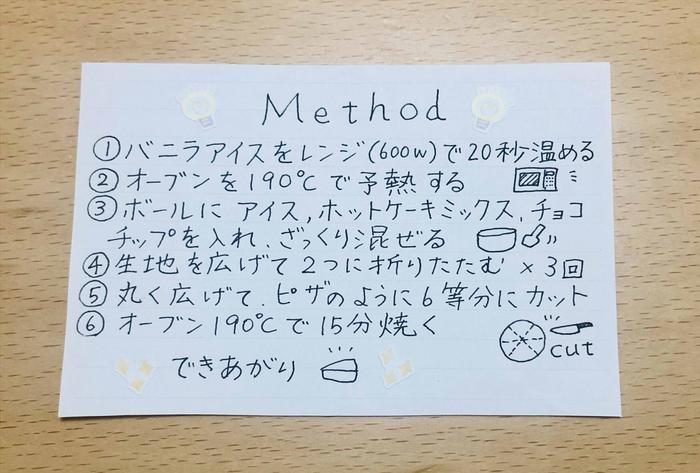 Method
①バニラアイスをレンジ(600w)で20秒温める
②オーブンを190℃で予熱する
③ボールにアイス,ホットケーキミックス,チョコ
チップを入れ、ざっくり混ぜる
④生地を広げて2つに折りたたむ×3回
⑤丸く広げて、ピザのように6等分にカット
⑥オーブン190℃で15分焼く
cut
できあがり